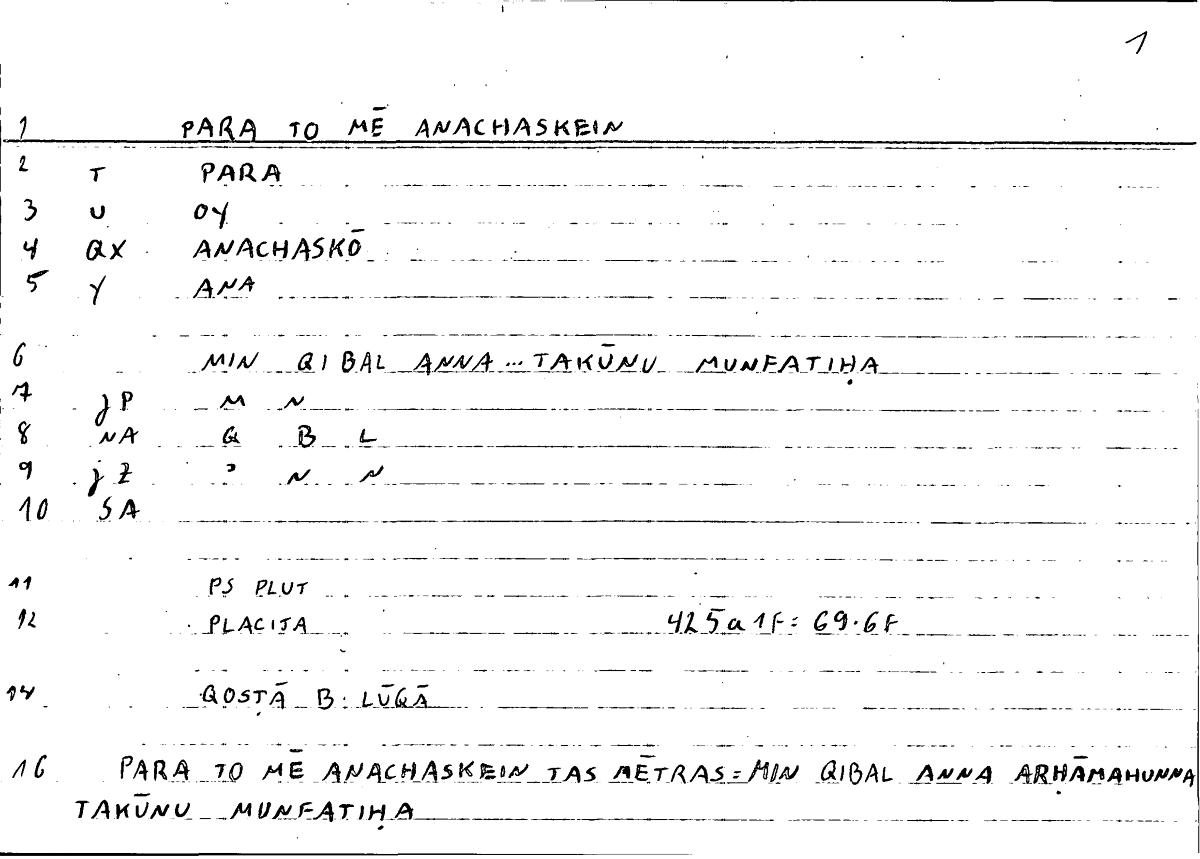 1
1 PARA TO MĒ ANACHASKEIN
2 T PARA
3 U OY
4 QX ANACHASKŌ
5 Y ANA
6 MIN QIBAL ANNA ... TAKŪNU MUNFATIḤA
7 jP M N
8 NA Q B L
9 jZ ʾ N N
10 SA
11 PS PLUT
12 PLACITA 425a1F= 69.6F
14 QOSṬĀ B. LŪQĀ
16 PARA TO MĒ ANACHASKEIN TAS MĒTRAS = MIN QIBAL ANNA ARḤĀMAHUNNA
TAKŪNU MUNFATIḤA